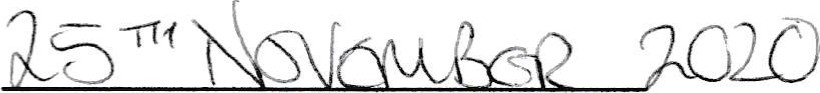 25TH NOVEMBER 2020